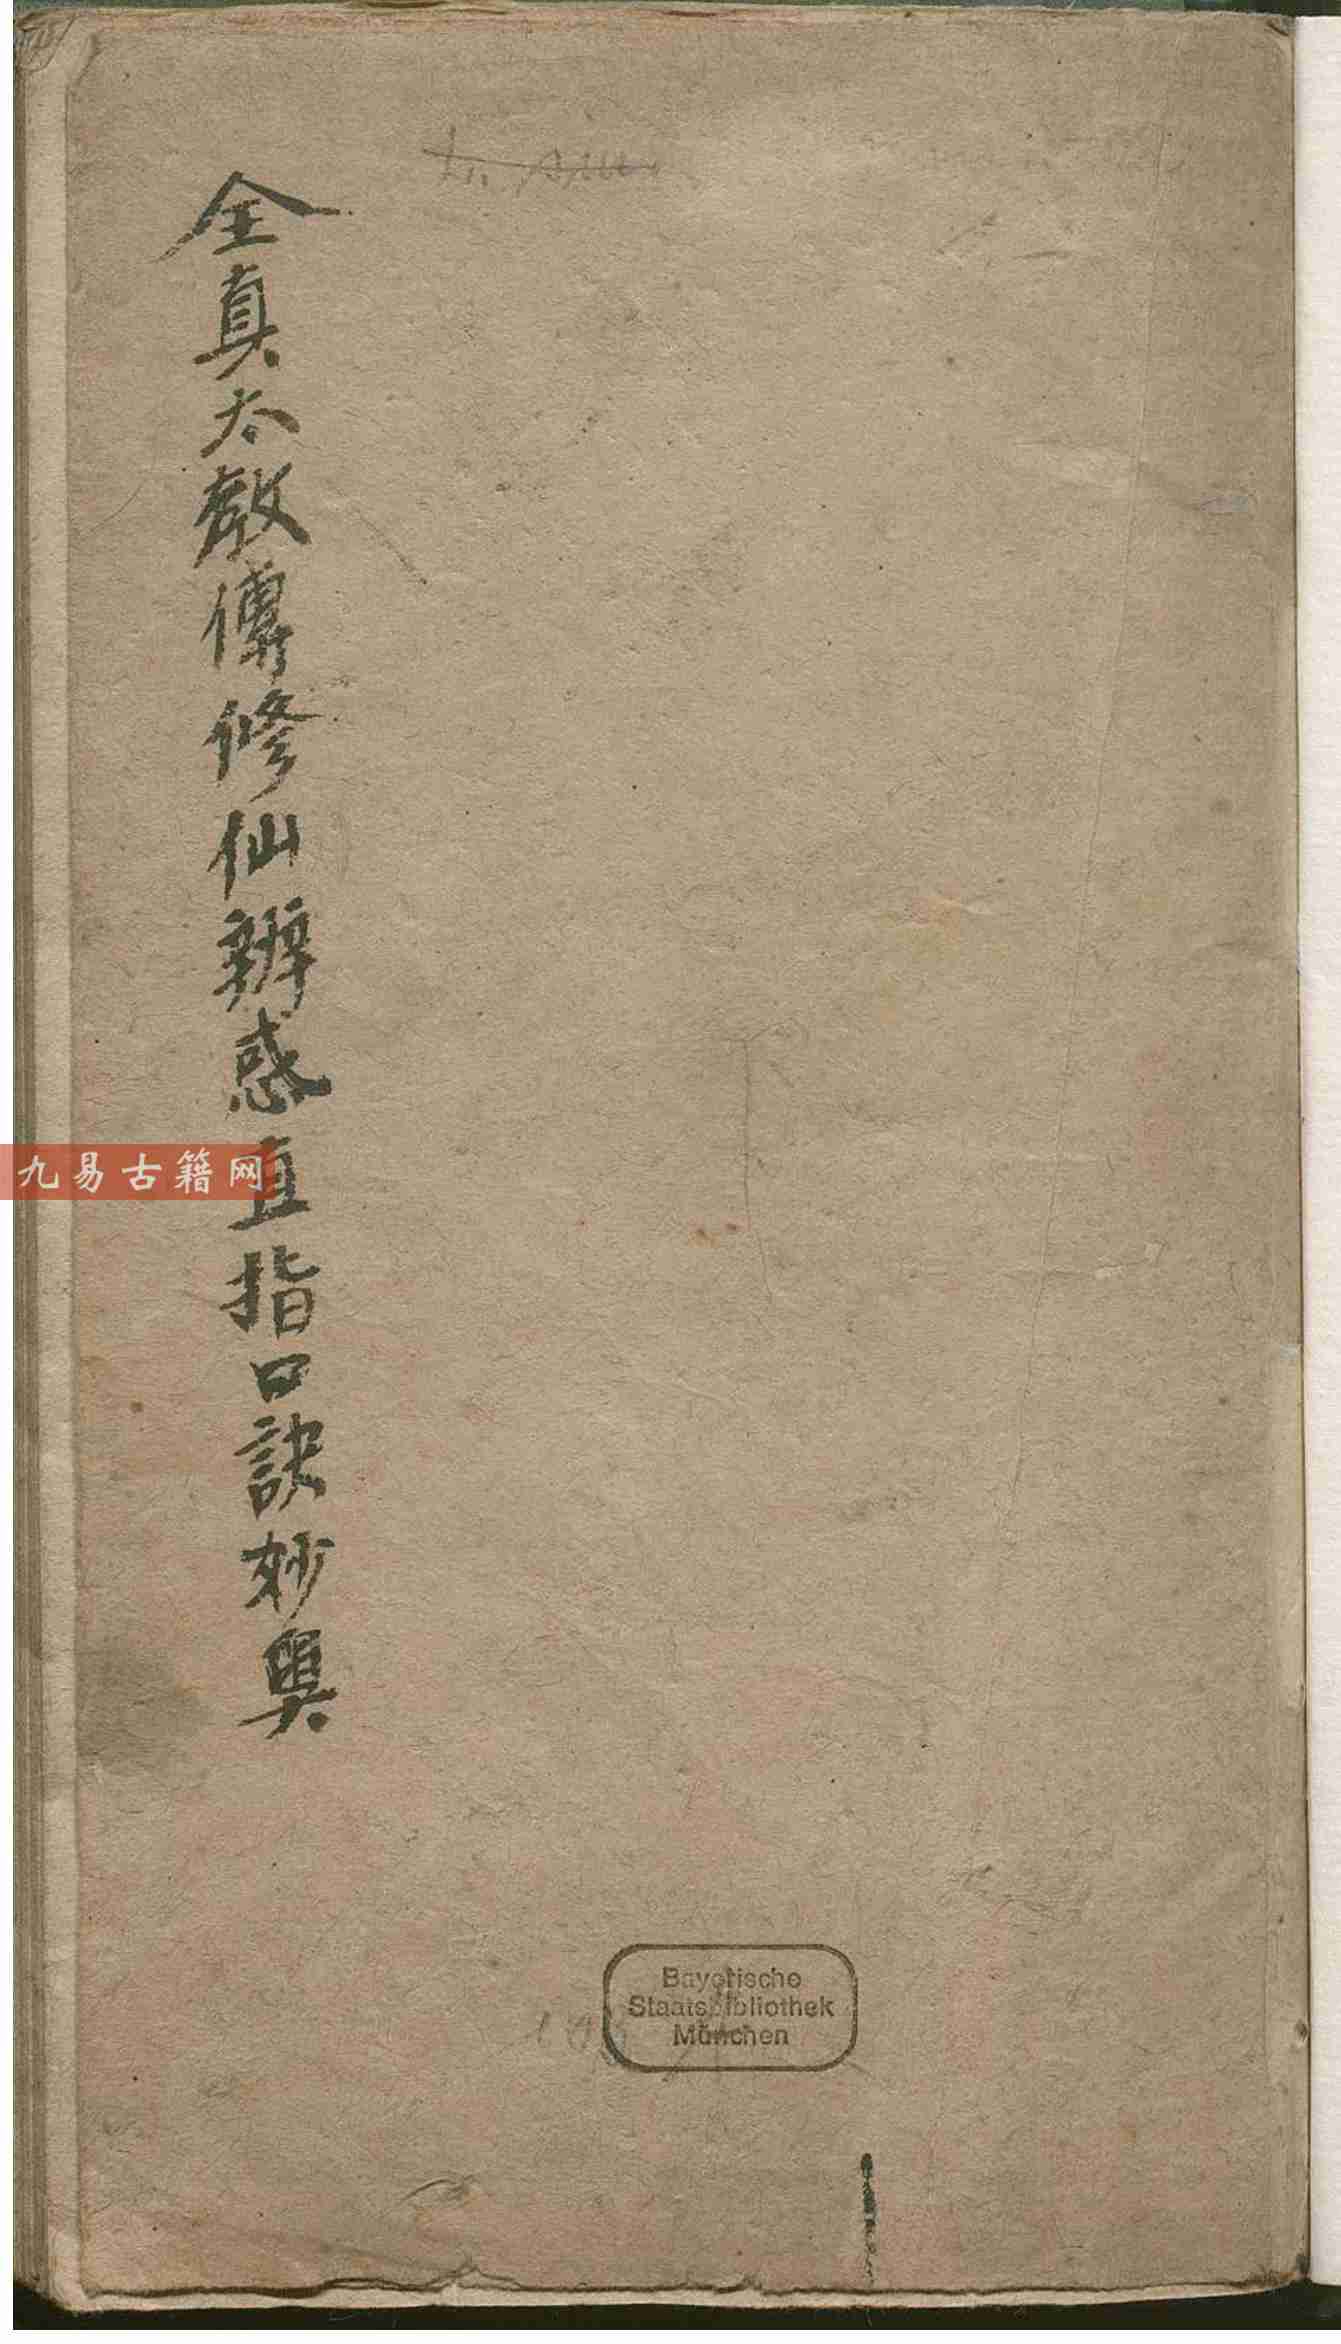 全真太教傳修仙辨惑直指口訣妙奥
九易古籍网
Bayerische
Staatsbibliothek
München